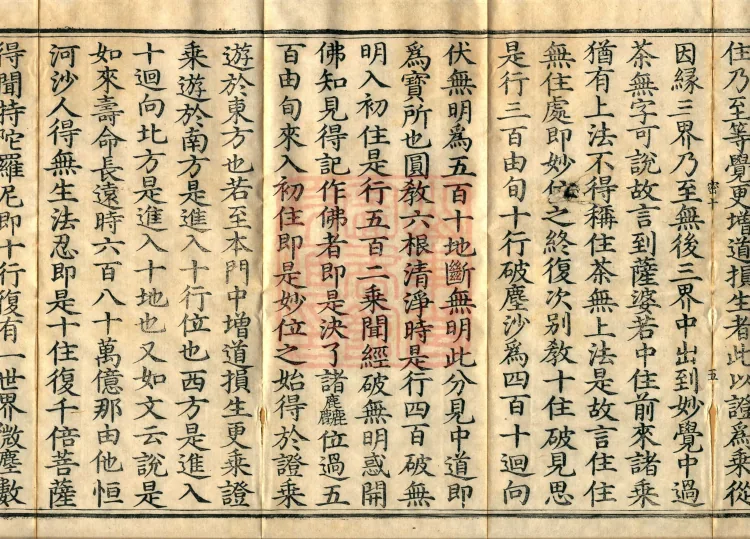 住乃至等覺更增道損生者此以證爲乘從
因緣三界乃至無後三界中出到妙覺中過
茶無字可說故言到薩婆若中住前來諸乘
猶有上法不得稱住茶無上法是故言住住
無住處即妙位之終復次別教十住破見思
是行三百由旬十行破塵沙爲四百十迴向
伏無明爲五百十地斷無明此分見中道即
爲寶所也圓教六根清淨時是行四百破無
明入初住是行五百二乘聞經破無明惑開
佛知見得記作佛者即是決了諸麁位過五
百由旬來入初住即是妙位之始得於證乘
遊於東方也若至本門中增道損生更乘證
乘遊於南方是進入十行位也西方是進入
十迴向北方是進入十地也又如文云說是
如來壽命長遠時六百八十萬億那由他恒
河沙人得無生法忍即是十住復千倍菩薩
得聞持陀羅尼即十行復有一世界微塵數